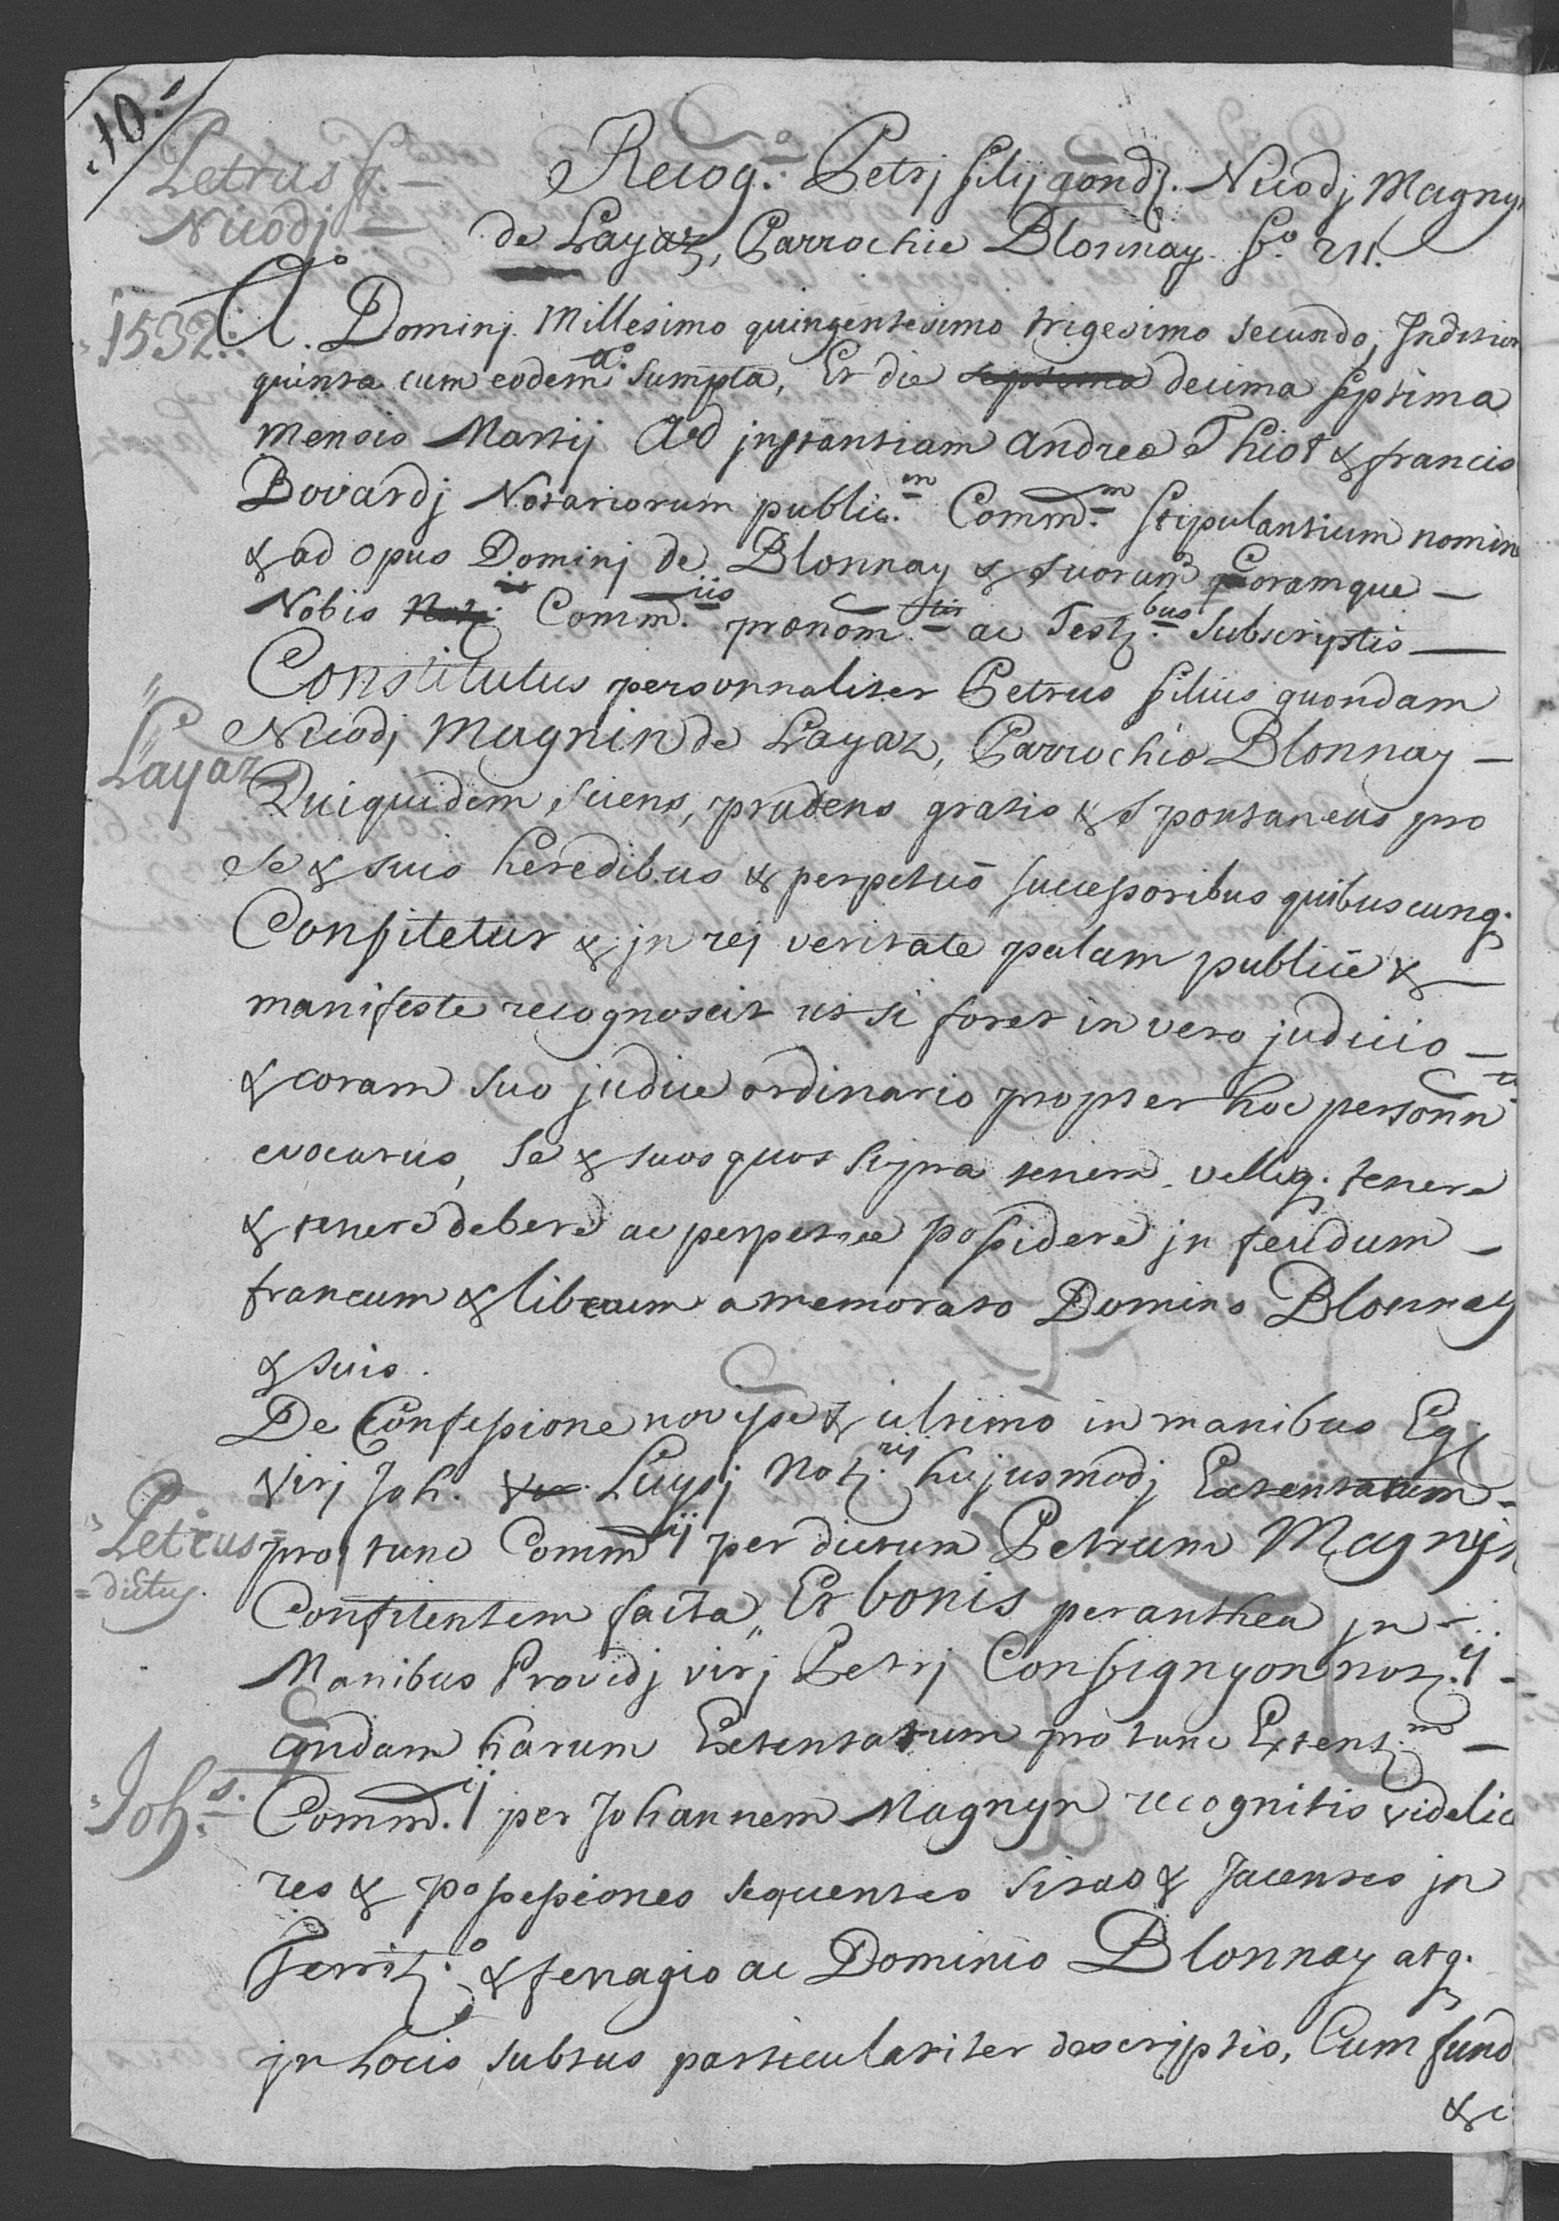 .10.
Petrus f. —
Nicodj. —
Recog.º Petrj filij qond̄. Nicodj Magnyn
de Layaz, Parrochie Blonnay. fº. 211.
1532.
Aº. Dominj. Millesimo quingentesimo trigesimo secundo, Indition
quinta cum eodem aº. sumpta, Et die septima decima septima
mensis Martij Ad jnstantiam Andree Thiot & francis
Bovardj Notariorum public.m Comm.m stipulantium nomin
& ad opus Dominj de Blonnay & suorum Coramque —
Nobis Not. Comm.iis prænom.tis ac Test.bus subscriptis —
Constitutus personnaliter Petrus filius quondam
Layaz
Nicodj Magnin de Layaz, Parrochie Blonnay —
Quiquidem, sciens, prudens gratis & spontaneus pro
se & suis heredibus & perpetuo successoribus quibuscunq.
Confitetur & jn rej veritate palam publice & —
manifeste recognoscit ut si foret in vero judicio —
& coram suo judice ordinario propter hoc personn
evocatus, se & suos quos supra tenere velleq. tenere
& tenere debere ac perpetue possidere jn feudum —
francum & liberum a memorato Domino Blonnay
& suis.
De Confessione novissime & ultimo in manibus Eg.
Virj Joh. Luysj Not.rij hujusmodj Extentarum —
Petrus
dictus.
pro tunc Comm.ij per dictum Petrum Magnyn
Confitentem facta, Et bonis peranthea jn —
Manibus Providj virj Petrj Consignyon not.ij —
qondam harum Extentarum pro tunc Extent.m —
Joh.s
Comm.ij per Johannem Magnyn recognitis videlic
res & possessiones sequentes sitas & Jacentes jn
Territ.o & tenagio ac Dominio Blonnay atq.
jn Locis subtus particulariter descriptis, Cum fund
& c